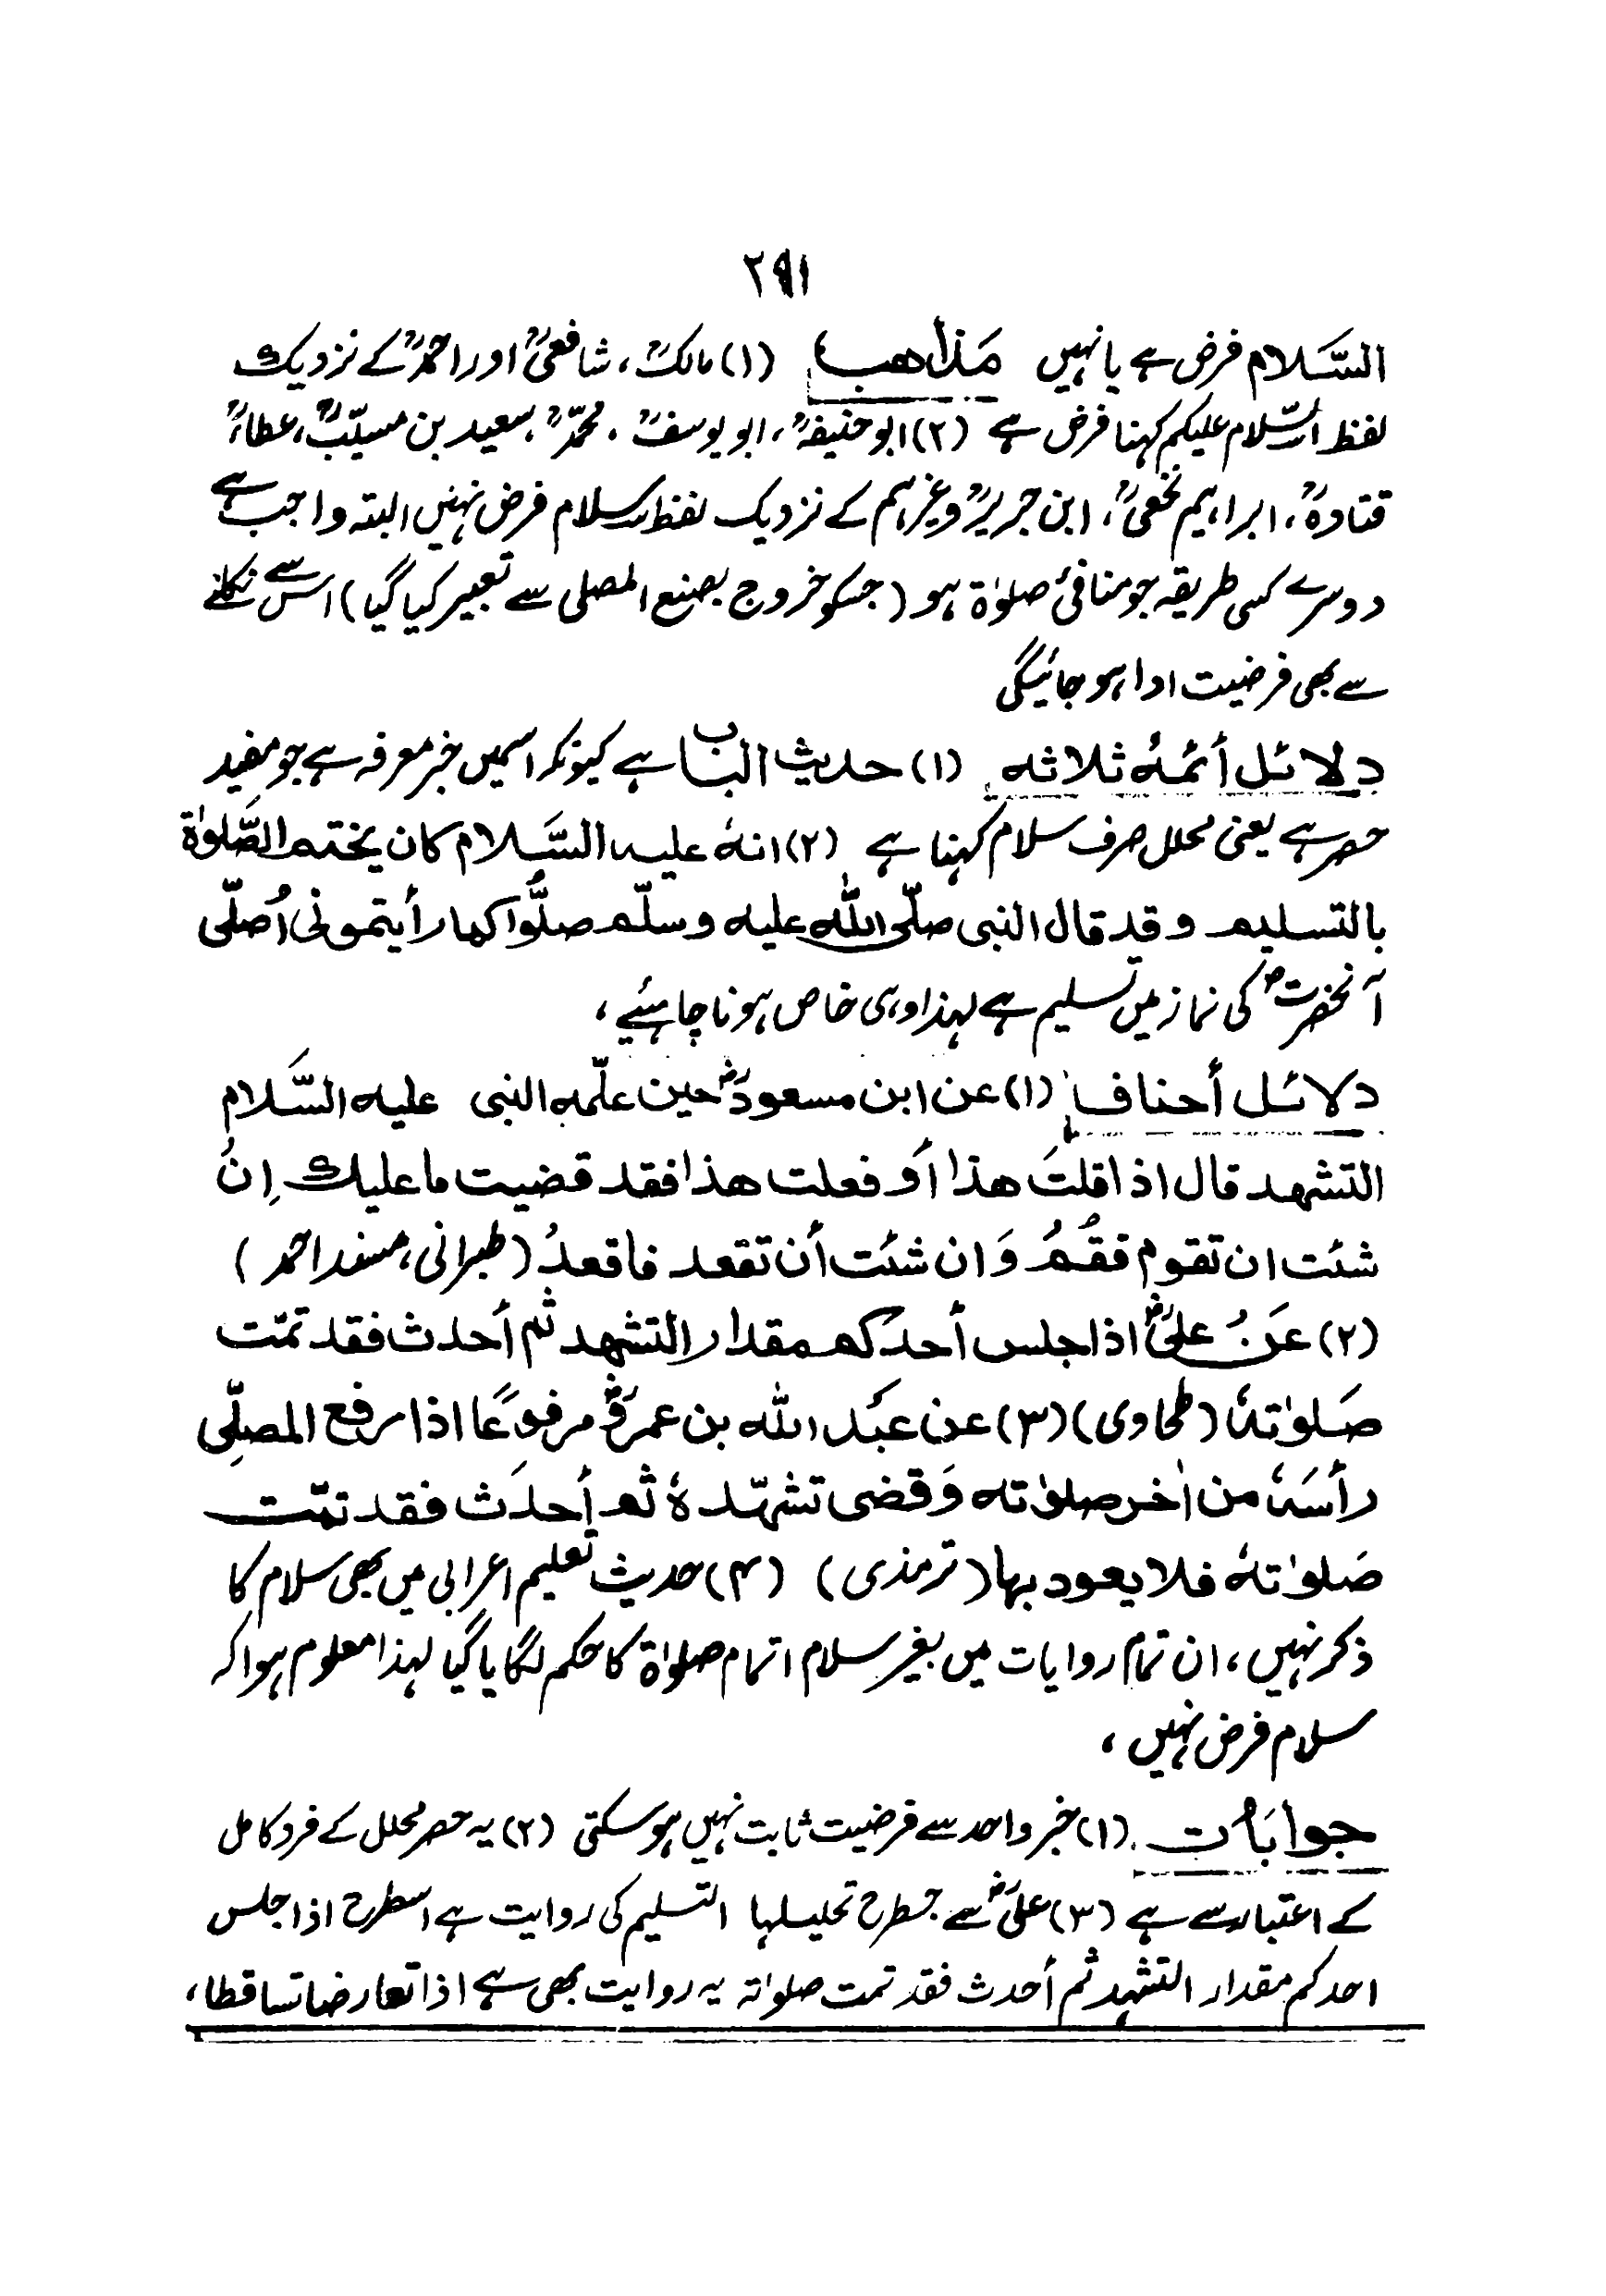 ۲۹۱
السَّلام فرض ہے یا نہیں مَذاهب (۱) مالکؒ، شافعیؒ اور احمدؒ کے نزدیک
لفظ السّلام علیکم کہنا فرض ہے (۲) ابو حنیفہؒ، ابو یوسفؒ، محمّدؒ، سعید بن مسیّبؒ، عطاءؒ،
قتادہؒ، ابراہیم نخعیؒ، ابن جریرؒ وغیرہم کے نزدیک لفظ سلام فرض نہیں البتہ واجب ہے
دوسرے کسی طریقہ جو منافئ صلوٰۃ ہو (جسکو خروج بصنع المصلی سے تعبیر کیا گیا) اس سے نکلنے
سے بھی فرضیت ادا ہو جائیگی
دلائل أئمۂ ثلاثه (۱) حدیث الباب ہے کیونکہ اسمیں خبر معرفہ ہے جو مفید
حصر ہے یعنی محلل صرف سلام کہنا ہے (۲) انهٗ علیہ السَّلام کان یختم الصَّلوٰة
بالتسلیم وقد قال النبی صلّی اللّٰه علیه وسلّم صلُّوا کما رأیتمونی اُصلّی
آنحضرتؐ کی نماز میں تسلیم ہے لہذا وہی خاص ہونا چاہئیے ،
دلائل أحناف (۱) عن ابن مسعودؓ حین علّمہ النبی علیه السَّلام
التشهد قال اذا قلتَ هذا أو فعلت هذا فقد قضیت ما علیك اِنْ
شئت ان تقوم فقُمْ وَان شئت أن تقعد فاقعدْ (طبرانی، مسند احمد)
(۲) عَنْ علیؓ اذا جلس أحدکم مقدار التشهد ثم أحدث فقد تمّت
صَلوٰتهٗ (طحاوی) (۳) عن عبد الله بن عمروؓ مرفوعًا اذا رفع المصلِّی
رأسَہٗ من اٰخر صلوٰته وَقضی تشهّدہٗ ثم أحدَث فقد تمّت
صَلوٰتهٗ فلا یعود بها (ترمذی) (۴) حدیث تعلیم اعرابی میں بھی سلام کا
ذکر نہیں، ان تمام روایات میں بغیر سلام اتمام صلوٰۃ کا حکم لگایا گیا لہذا معلوم ہوا کہ
سلام فرض نہیں ،
جوابات (۱) خبر واحد سے فرضیت ثابت نہیں ہو سکتی (۲) یہ حصر محلل کے فرد کامل
کے اعتبار سے ہے (۳) علیؓ سے جسطرح تحلیلہا التسلیم کی روایت ہے اسطرح اذا جلس
احدکم مقدار التشہد ثم أحدث فقد تمت صلوٰتہ یہ روایت بھی ہے اذا تعارضا تساقطا،